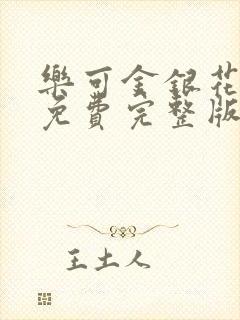 樂可金銀花
免費完整版
王土人